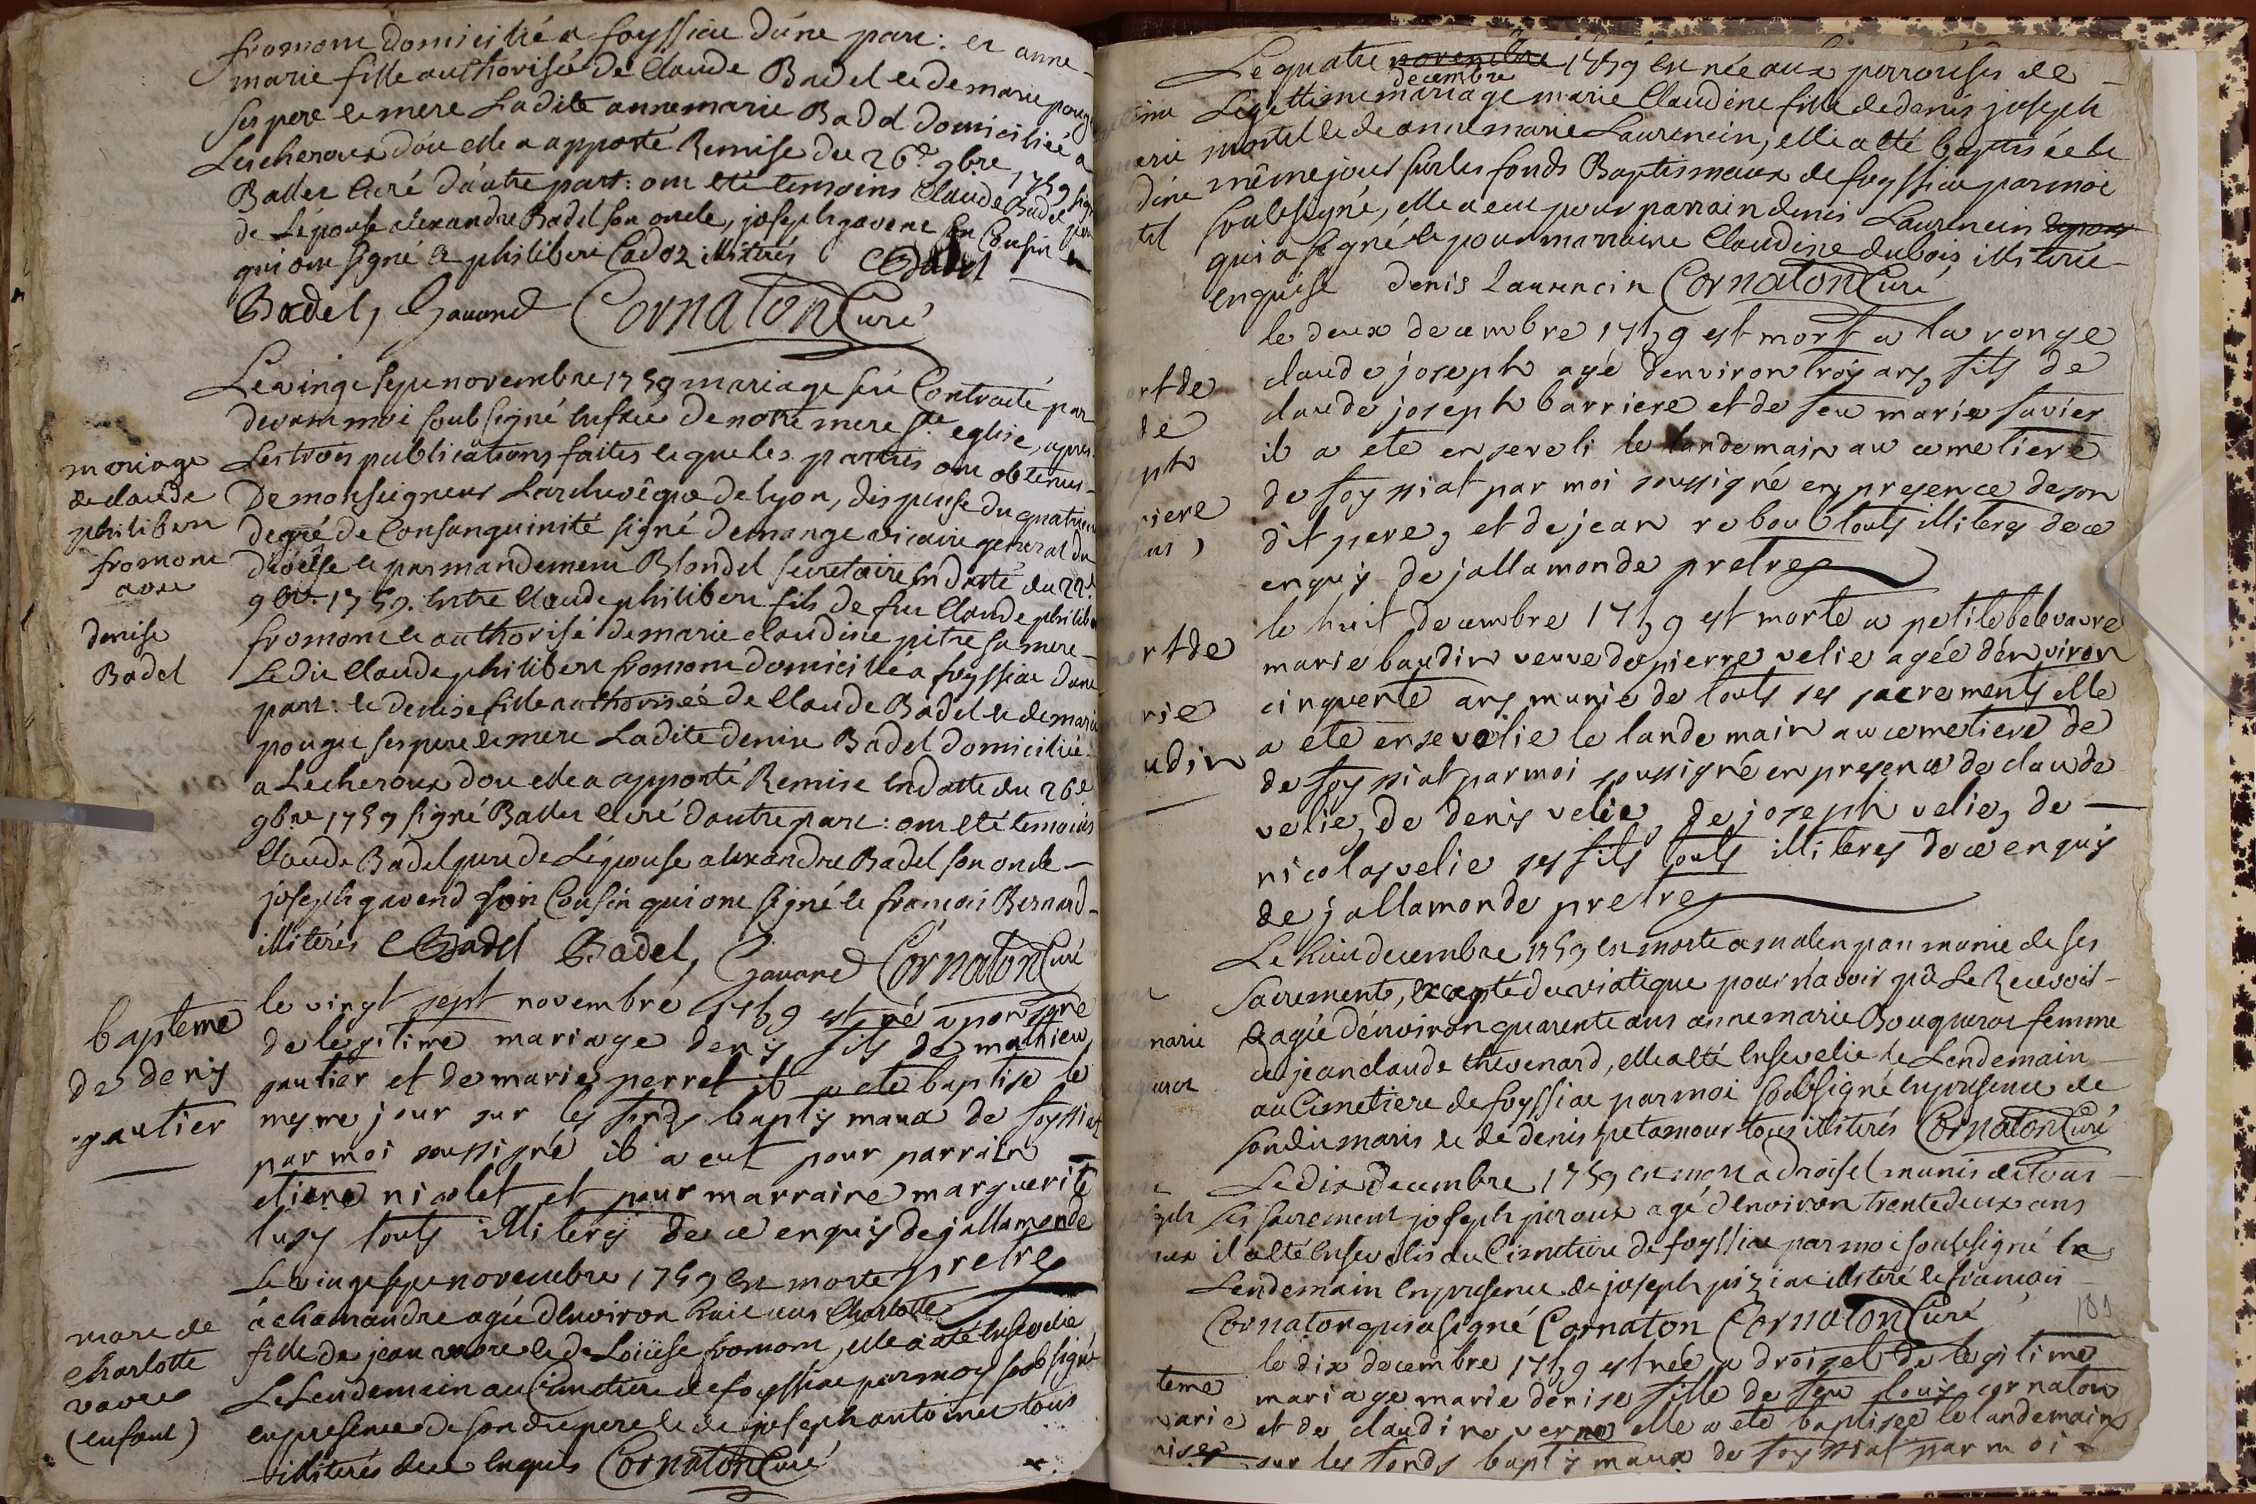 fromont domicilié a foyssiat d'une part: et anne-
marie fille authorisée de Claude Badel et de marie pougu
ses pere et mere Ladite annemarie Badel domiciliée a
Lescheroux d'ou elle a apporté Remise du 26e 9bre 1759 signé
Ballet Curé d'autre part: ont été temoins Claude Badel pere
de L'épouse alexandre Badel son oncle, joseph gavend son Cousin
qui ont signé et philibert Cadoz illiterés CBadel
Badel, Gavand Cornaton Curé
Le vingt sept novembre 1759 mariage fut Contracté par
devant moi soubsigné en face de notre mere ste eglise, apres
Les trois publications faites et que les parties ont obtenus
De monseigneur L'archevêque de lyon, dispense du quatrieme
degré de Consanguinité signé demange vicaire general du
diocèse et par mandement Blondel secretaire En datte du 22e
9bre 1759. Entre Claude philibert fils de feu Claude philibert
fromont et authorisé de marie claudine pitre sa mere
Ledit Claude philibert fromont domicilié a foyssiat d'une
part: et denise fille authorisée de Claude Badel et de marie
pougu ses pere et mere Ladite denise Badel domiciliée
a Lecheroux dou elle a apporté Remise En datte du 26e
9bre 1759 signé Ballet Curé d'autre part: ont été temoins
Claude Badel pere de L'épouse alexandre Badel son oncle
joseph gavend son Cousin qui ont signé et francois Bernard
illiterés CBadel Badel, Gavand Cornaton Curé
mariage
de claude
philibert
fromont
avec
denise
Badel
le vingt sept novembre 1759 est né a
de legitime mariage denis fils de mathieu
gautier et de marie perret il a ete baptise le
mesme jour sur les fonds baptismaux de foyssiat
par moi soussigné il a eut pour parrain
etiene nicolet et pour marraine marguerite
lusy touts illiteres de ce enquis dejallamonde
pretre
bapteme
de denis
gautier
Le vingt sept novembre 1759 est morte
à chamandre agée d'Environ huit ans Charlotte
fille de jean vavre et de Loüise fromont, elle a été Ensevelie
Le Lendemain au Cimetiere de foyssiat par moy soubsigné
en presence de son dit pere et de joseph antoinet tous
illiterés de ce Enquis Cornaton Curé
mort de
Charlotte
vavre
(enfant)
Le quatre novembre decembre 1759 est née aux perrouses de
Légittime mariage marie Claudine fille de denis joseph
mortel et de anne marie Laurencin, elle a été baptisée le
même jour sur les fonds Baptismaux de foyssiat par moi
soubsigné, elle a eu pour parrain denis Laurencin
qui a signé et pour marraine Claudine dubois illiterée
enquise denis Laurencin Cornaton Curé
le deux decembre 1759 est mort a la ronge
claude joseph agé denviron troys ans, fils de
claude joseph barriere et de feu marie favier
il a ete enseveli le landemain au cemetiere
de foyssiat par moi soussigné en presence de son
dit pere, et de jean reboul touts illiteres de ce
enquis dejallamonde pretre
ort de
riere
le huit decembre 1759 est morte a petitebelevavre
marie baudin veuve de pierre velie agée d'environ
cinquente ans munie de touts ses sacrements elle
a ete ensevelie le landemain au cemetiere de
de foyssiat par moi soussigné en presence de claude
velie, de denis velie, de joseph velie, de
nicolas velie ses fils touts illiteres de ce enquis
de jallamonde pretre
rt de
rie
udin
Le huit decembre 1759 est morte a munie de ses
sacrements, excepté du viatique pour n'avoir pû Le Recevoir
& agée d'environ quarente ans anne marie Bouquerot femme
de jean claude thevenard, elle a été Ensevelie le Lendemain
au Cimetiere de foyssiat par moi soubsigné en presence de
son dit maris et de denis tous illiterés Cornaton Curé
marie
Le dix decembre 1759 est mort a droisel munis de tous
ses sacrement joseph peroux agé d'environ trente deux ans
il a été Ensevelis au Cimetiere de foyssiat par moi soubsigné le
Lendemain En presence de joseph piziat illiteré et francois
Cornaton qui a signé Cornaton Cornaton Curé
181
le dix decembre 1759 est née a droisel de legitime
mariage marie denise fille de feu louis cornaton
et de claudine verne elle a ete baptisee le landemain
sur les fonds baptismaux de foyssiat par moi
teme
arie
nise